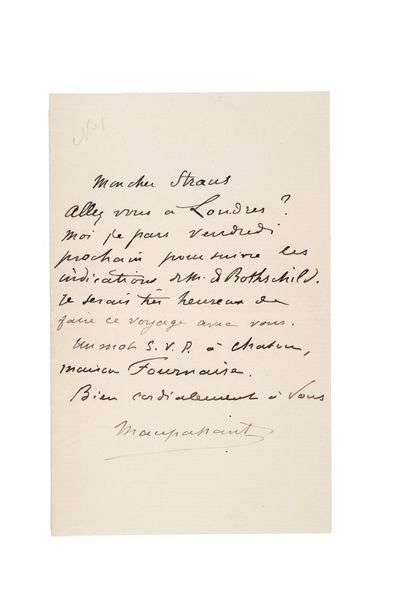 Mon cher Straus
Allez vous à Londres ?
Moi je pars vendredi
prochain pour suivre les
indications de M. de Rothschild.
Je serais très heureux de
faire ce voyage avec vous.
Un mot S. V. P. à Chatou,
maison Fournaise.
Bien cordialement à vous
Maupassant